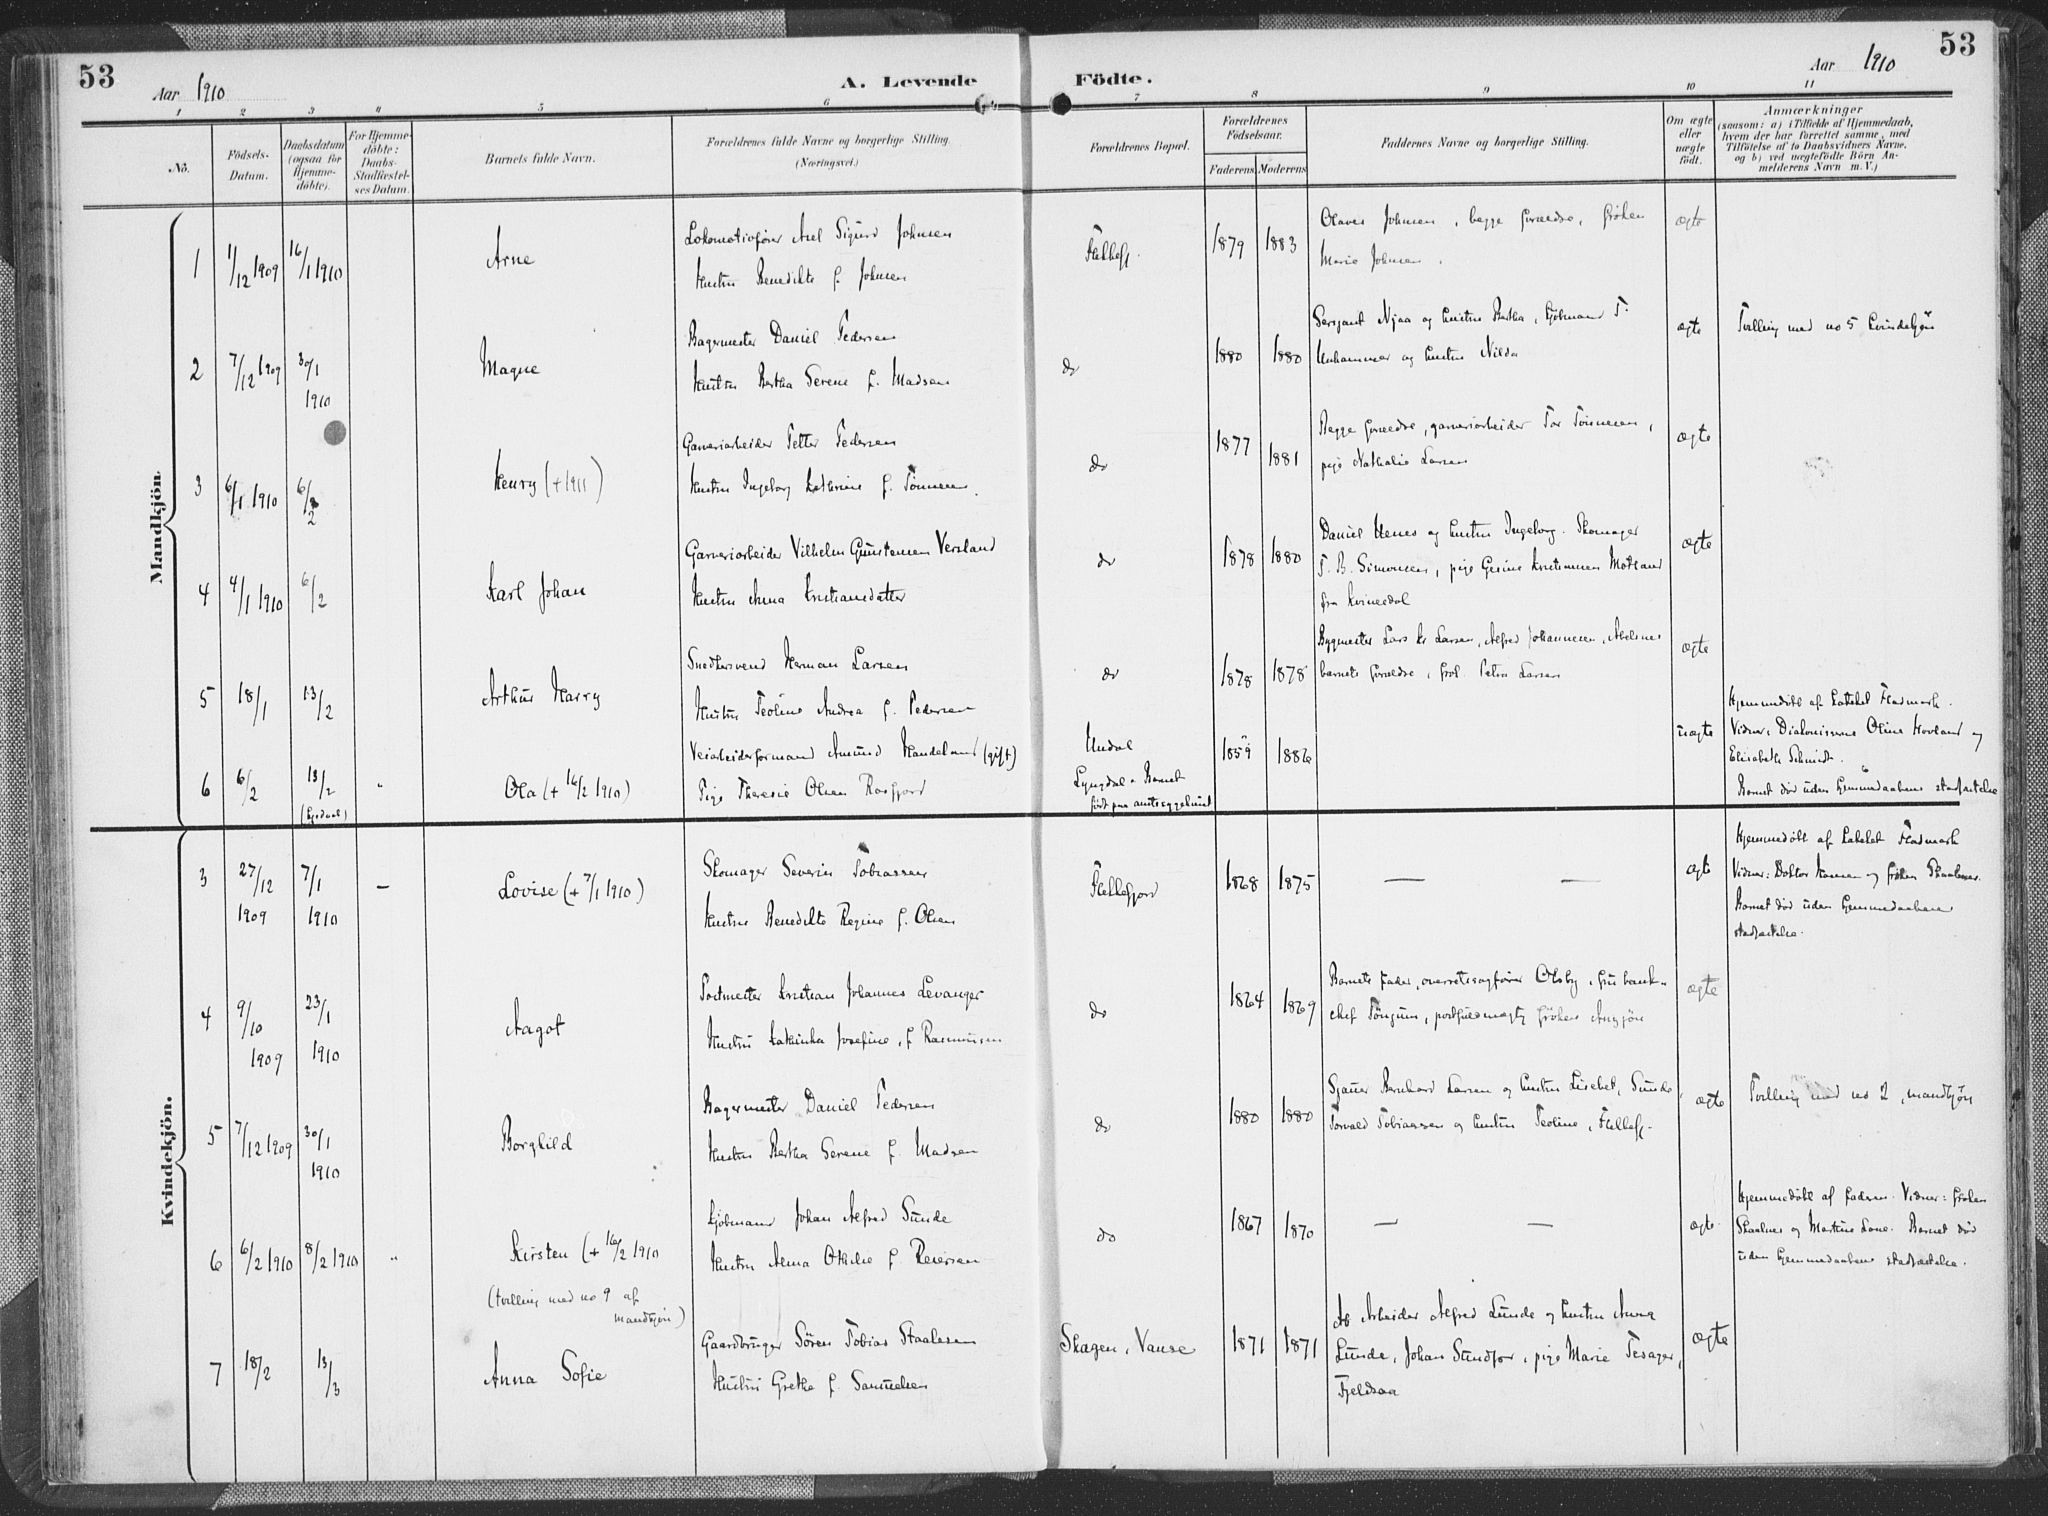 53
Aar 1910
A. Levende Födte.
Aar 1910
53
1 2 3 4 5 6 7 8 9 10 11
No.
Födsels-Datum.
Daabsdatum (ogsaa for Hjemme-döbte).
For Hjemme-döbte: Daabs-Stadfæstel-ses Datum.
Barnets fulde Navn.
Forældrenes fulde Navne og borgerlige Stilling.
(Næringsvei.)
Forældrenes Bopæl.
Forældrenes Födselsaar.
Faderens Moderens
Faddernes Navne og borgerlige Stilling.
Om ægte eller uægte födt.
Anmærkninger
(saasom: a) i Tilfælde af Hjemmedaab,
hvem der har forrettet samme, med
Tilföielse af to Daabsvidners Navne,
og b) ved uægtefödte Börn An-
melderens Navn m. V.)
Mandkjön.
1 1/12 1909 16/1 1910 Arne
Lokomotivfører Axel Sigurd Johnsen
Hustru Benedikte f. Johnsen
Flekkefj. 1879 1883
Olaves Johnsen, begge forældre, frøken
Marie Johnsen.
ægte
2 7/12 1909 30/1 1910 Magne
Bagermester Daniel Pedersen
Hustru Bertha Serene f. Madsen
do 1880 1880
Sersjant Njaa og hustru Bertha, kjøbmand T.
Unhammer og hustru Nilda
ægte
Tvilling med no 5 kvindekjøn
3 6/1 1910 6/2 Henry (+ 1911)
Garveriarbeider Petter Pedersen
Hustru Ingeborg Kathrine f. Tønnesen
do 1877 1881
Begge forældre, garveriarbeider Tor Tønnesen,
pige Nathalie Larsen
ægte
4 4/1 1910 6/2 Karl Johan
Garveriarbeider Vilhelm Gunstensen Versland
Hustru Anna Kristiansdatter
do 1878 1880
Daniel Henes og hustru Ingeborg. Skomager
T. B. Simonsen, pige Gesine Kristensen Motland
fra Kvinesdal
ægte
5 18/1 13/2 Arthur Harry
Snedkersvend Herman Larsen
Hustru Teoline Andrea f. Pedersen
do 1878 1878
Bygmester Lars Kr Larsen, Alfred Johannesen, Abelsnes
barnets forældre, frøk Petra Larsen
ægte
6 6/2 13/2 " Ola (+ 16/2 1910)
Veiarbeiderformand Amund Handeland (gift)
Pige Theresie Olsen Rosfjord
Undal
Lyngdal - Barnet
født paa amtssygehuset
1859 1886
uægte
Hjemmedøbt af Kateket Fladmark.
Vidner: Diakonisserne Oline Hovland og
Elisabeth Schmidt.
Barnet død uden hjemmedaabens stadfæstelse
Kvindekjön.
3 27/12 1909 7/1 1910 — Lovise (+ 7/1 1910)
Skomager Severin Tobiassen
Hustru Benedikte Regine f. Olsen
Flekkefjord 1868 1875 — —
ægte
Hjemmedøbt af Kateket Fladmark
Vidner: Doktor Hansen og frøken Skaalnes.
Barnet død uden hjemmedaabens
stadfæstelse.
4 9/10 1909 23/1 1910 Aagot
Postmester Kristian Johannes Levanger
Hustru Kathinka Josefine, f Rasmussen
do 1864 1869
Barnets fader, overretssagfører Olsby, fru bank-
chef Tönjum, postfuldmægtig frøken
ægte
5 7/12 1909 30/1 1910 Borghild
Bagermester Daniel Pedersen
Hustru Bertha Serene f. Madsen
do 1880 1880
Sjauer Bernhard Larsen og hustru Lisebet, Sunde,
Torvald Tobiassen og hustru Teoline, Flekkefj.
ægte
Tvilling med no 2, mandkjøn
6 6/2 1910 8/2 1910 " Kirsten (+ 16/2 1910
(tvilling med no 9 af
mandkjøn)
Kjøbmand Johan Alfred Sunde
Hustru Anna Othilie f. Reiersen
do 1867 1870 — —
ægte
Hjemmedøbt af faderen. Vidner: frøken
Skaalnes og Martine Lone. Barnet død
uden hjemmedaabens stadfæstelse.
7 18/2 13/3 Anna Sofie
Gaardbruger Sören Tobias Staalesen
Hustru Grethe f. Samuelsen
Skagen, Vanse 1871 1871
Arbeider Alfred Lunde og hustru Anna
Lunde, Johan Sundfør, pige Marie Tesager,
Fjeldsaa
ægte